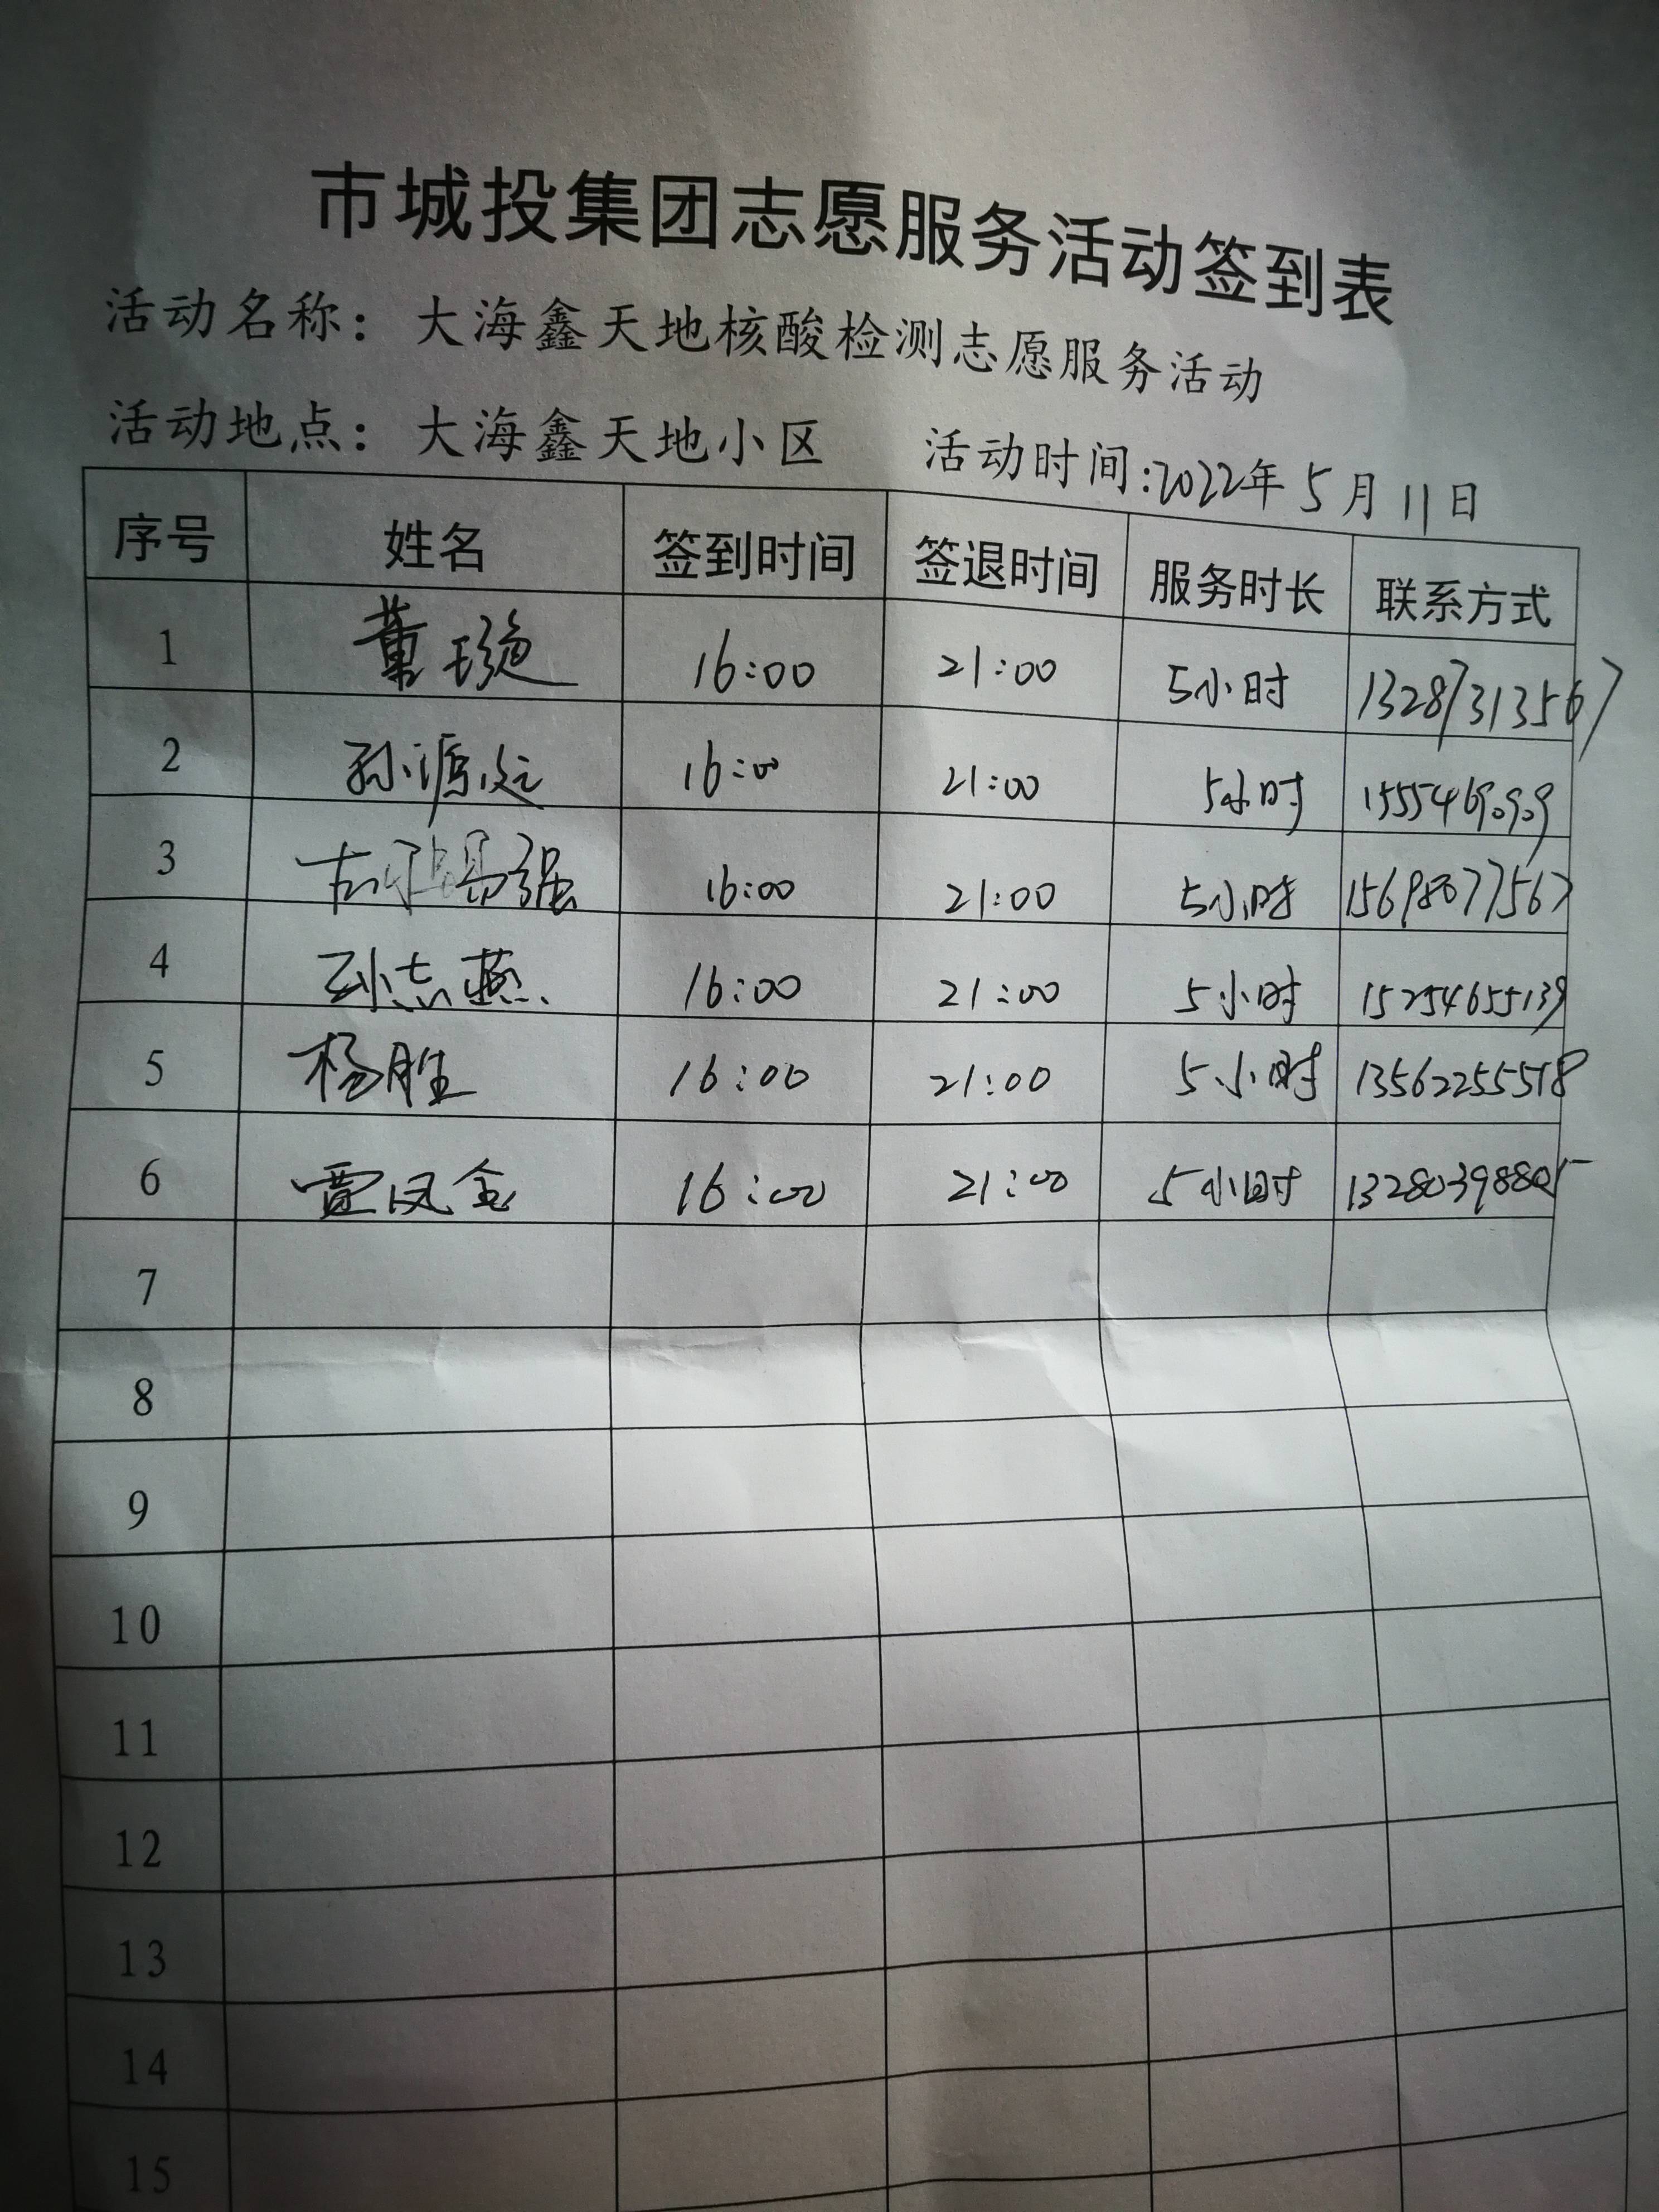 市城投集团志愿服务活动签到表
活动名称：大海鑫天地核酸检测志愿服务活动
活动地点：大海鑫天地小区 活动时间:2022年5月11日
序号 姓名 签到时间 签退时间 服务时长 联系方式
1 董 16:00 21:00 5小时 13287313567
2 孙源 16:00 21:00 5小时 15554690909
3 强 16:00 21:00 5小时 15698077567
4 孙志燕 16:00 21:00 5小时 15254655139
5 杨胜 16:00 21:00 5小时 13562255518
6 贾凤金 16:00 21:00 5小时 13280398805
7
8
9
10
11
12
13
14
15